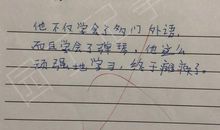 他不仅学会了多门外语，
而且学会了弹琴，他这么
顽强地学习，终于瘫痪了。